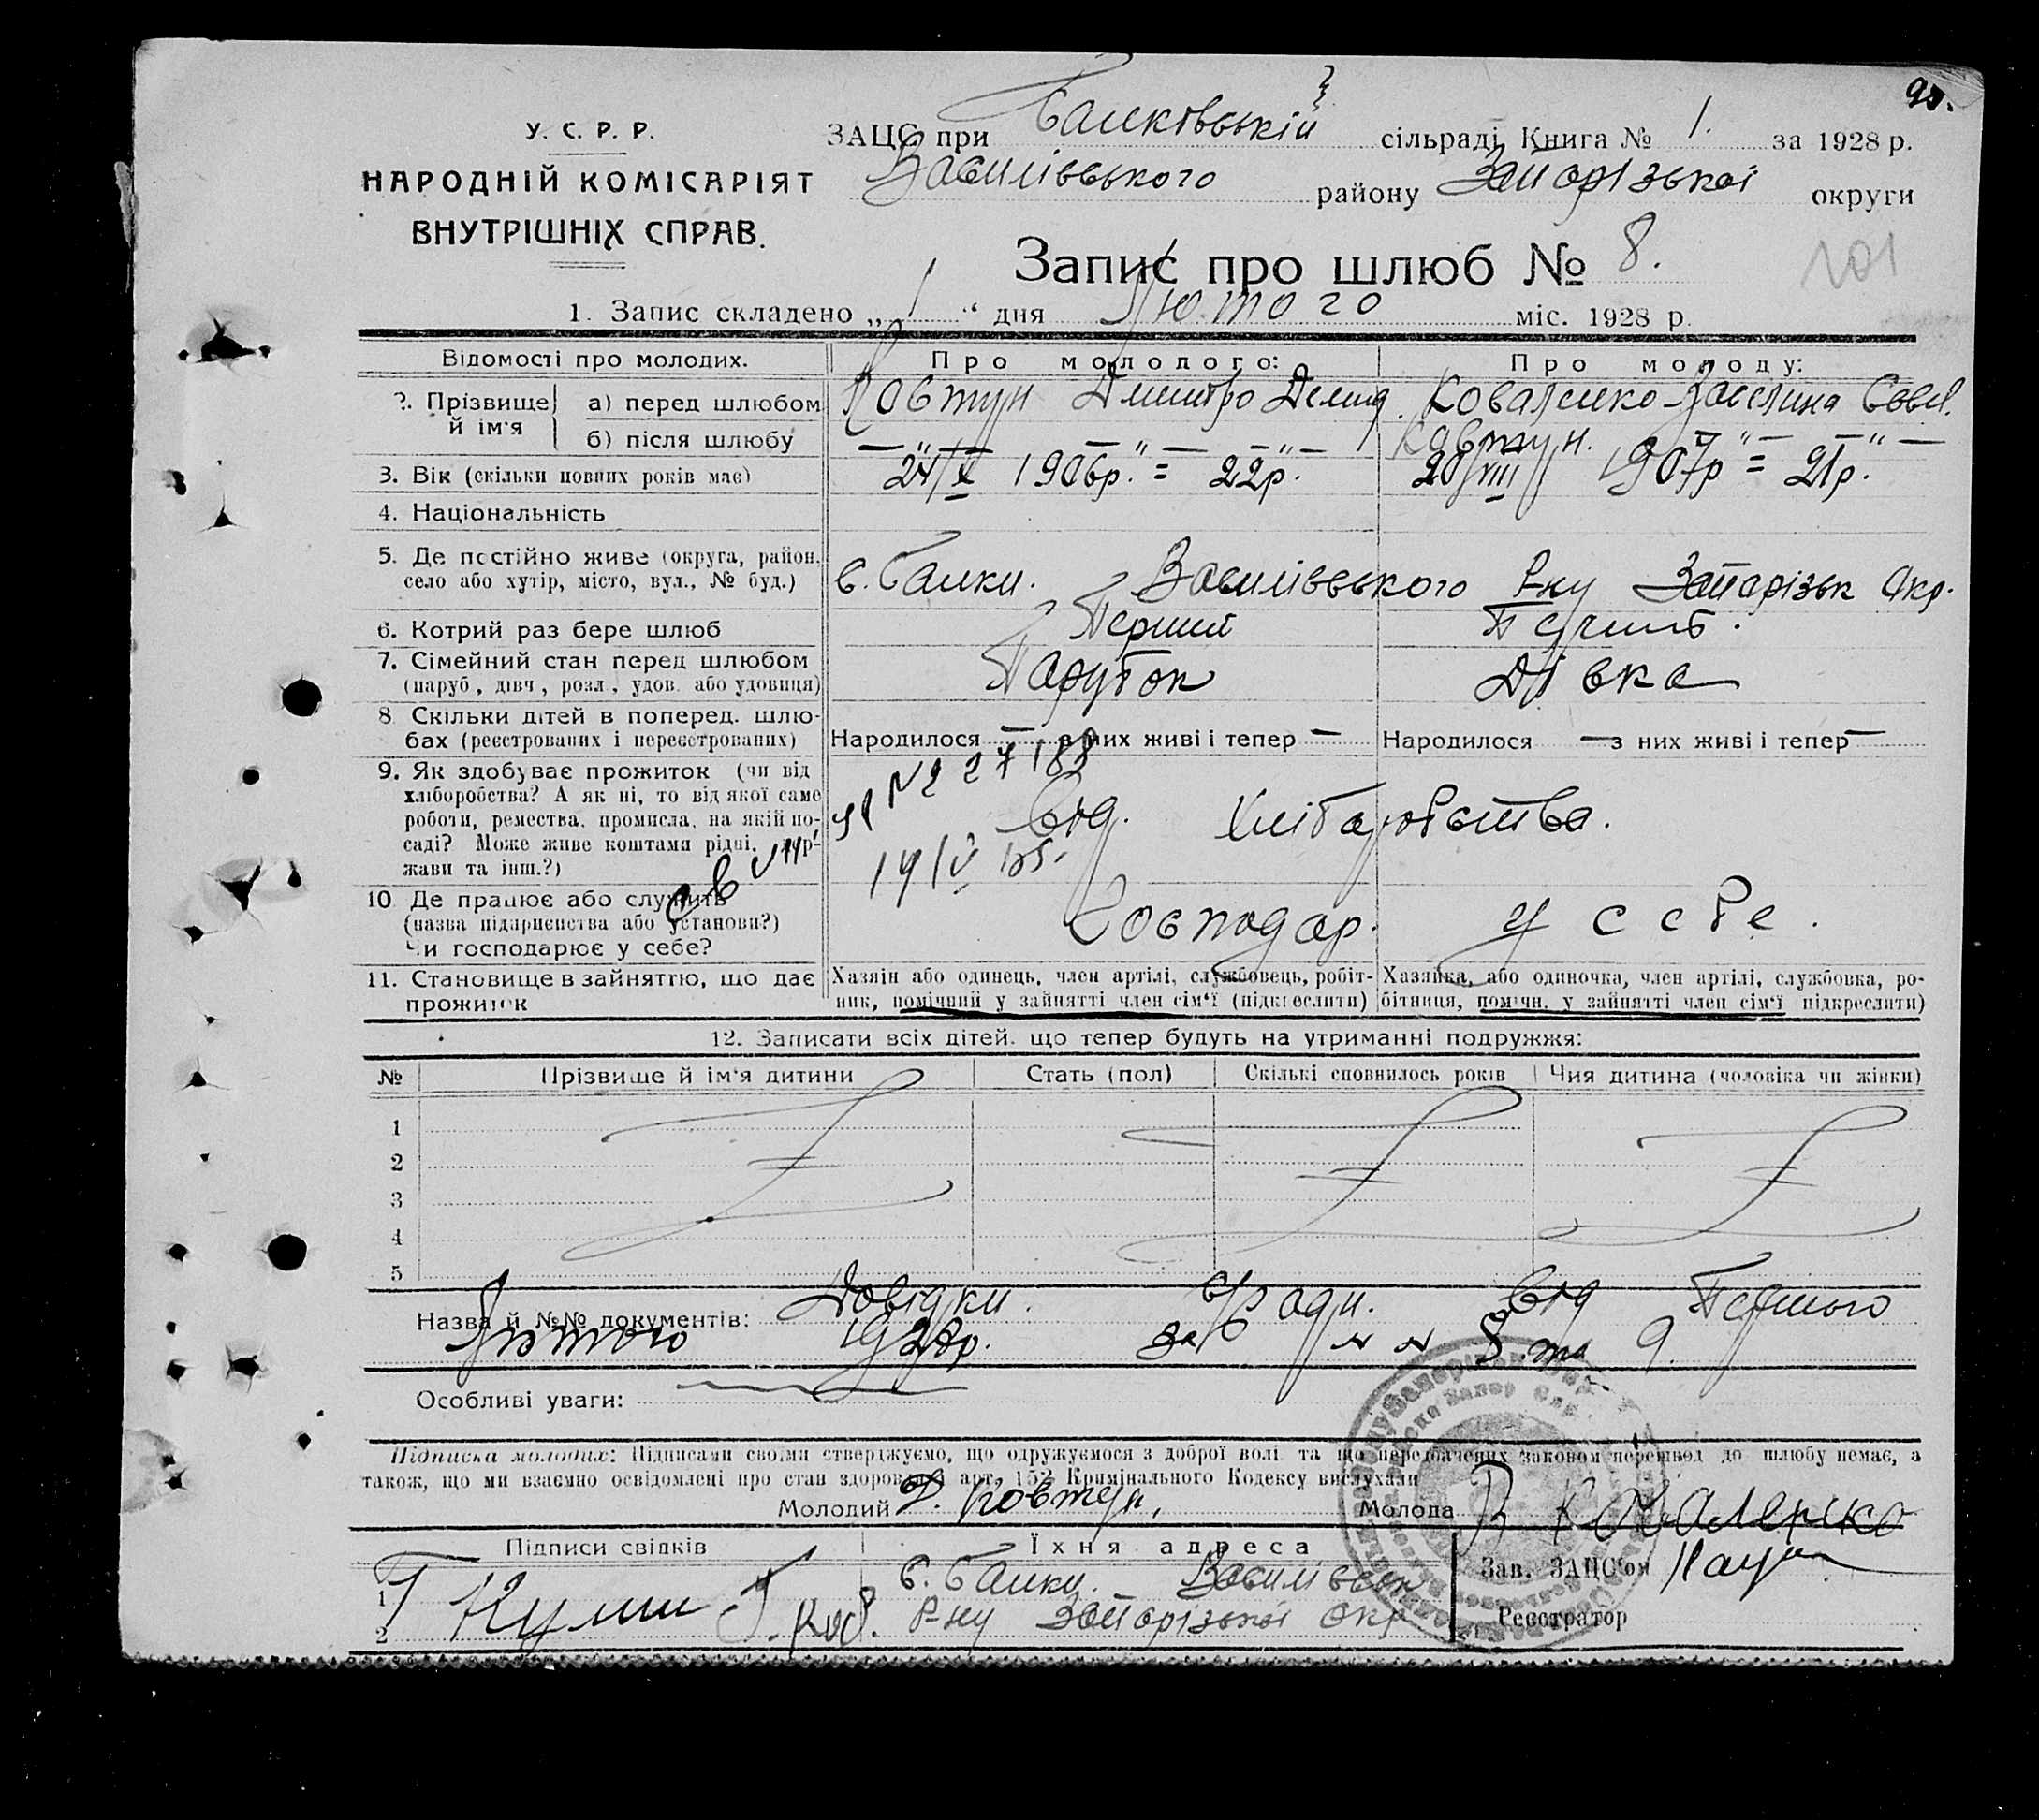 90.
У. С. Р. Р.
НАРОДНІЙ КОМІСАРІЯТ
ВНУТРІШНІХ СПРАВ.
ЗАЦС при Балківській сільраді Книга № 1. за 1928 р.
Василівського району Запорізької округи
Запис про шлюб № 8.
101
1. Запис складено „ 1 “ дня Лютого міс. 1928 р.
Відомості про молодих. Про молодого: Про молоду:
2. Прізвище й ім'я а) перед шлюбом Ковтун Дмитро Демид. Коваленко
б) після шлюбу — " — — " — — " — Ковтун. — " — — " —
3. Вік (скільки повних років має) 24/X 1906р. = 22р. 20/VIII 1907р = 21р.
4. Національність
5. Де постійно живе (округа, район, село або хутір, місто, вул., № буд.) с. Балки. Василівського Р-ну Запорізьк Окр.
6. Котрий раз бере шлюб Перший Перший.
7. Сімейний стан перед шлюбом Парубок Дівка
(паруб., дівч., розл., удов. або удовиця)
8. Скільки дітей в поперед. шлю-
бах (реєстрованих і нереєстрованих) Народилося — з них живі і тепер — Народилося — з них живі і тепер —
9. Як здобуває прожиток (чи від
хліборобства? А як ні, то від якої саме
роботи, ремества, промисла, на якій по-
саді? Може живе коштами рідні, дер-
жави та інш.?) Від. Хліборобства.
10. Де працює або служить
(назва підприємства або установи?)
Чи господарює у себе? Господар. у себе.
11. Становище в зайняттю, що дає
прожиток
Хазяін або одинець, член артілі, службовець, робіт-
ник, помічний у зайнятті член сім'ї (підкреслити)
Хазяйка, або одиночка, член артілі, службовка, ро-
бітниця, помічн. у зайнятті член сім'ї підкреслити)
12. Записати всіх дітей, що тепер будуть на утриманні подружжя:
№ Прізвище й ім'я дитини Стать (пол) Скількі сповнилось років Чия дитина (чоловіка чи жінки)
1
2
3
4
5
Назва й №№ документів: Довідки. С/Ради. Від Першого
Лютого 1928р. за № № 8 та 9.
Особливі уваги:
Підписка молодих: Підписами своїми стверджуємо, що одружуємося з доброї волі та що передбачених законом перешкод до шлюбу немає, а
також, що ми взаємно освідомлені про стан здоров'я і арт. 152 Кримінального Кодексу вислухали
Молодий Д. Ковтун, Молода В Коваленко
Підписи свідків Їхня адреса
1 с. Балки. Василівськ Зав. ЗАЦС'ом
2 Р-ну Запорізької Окр Реєстратор